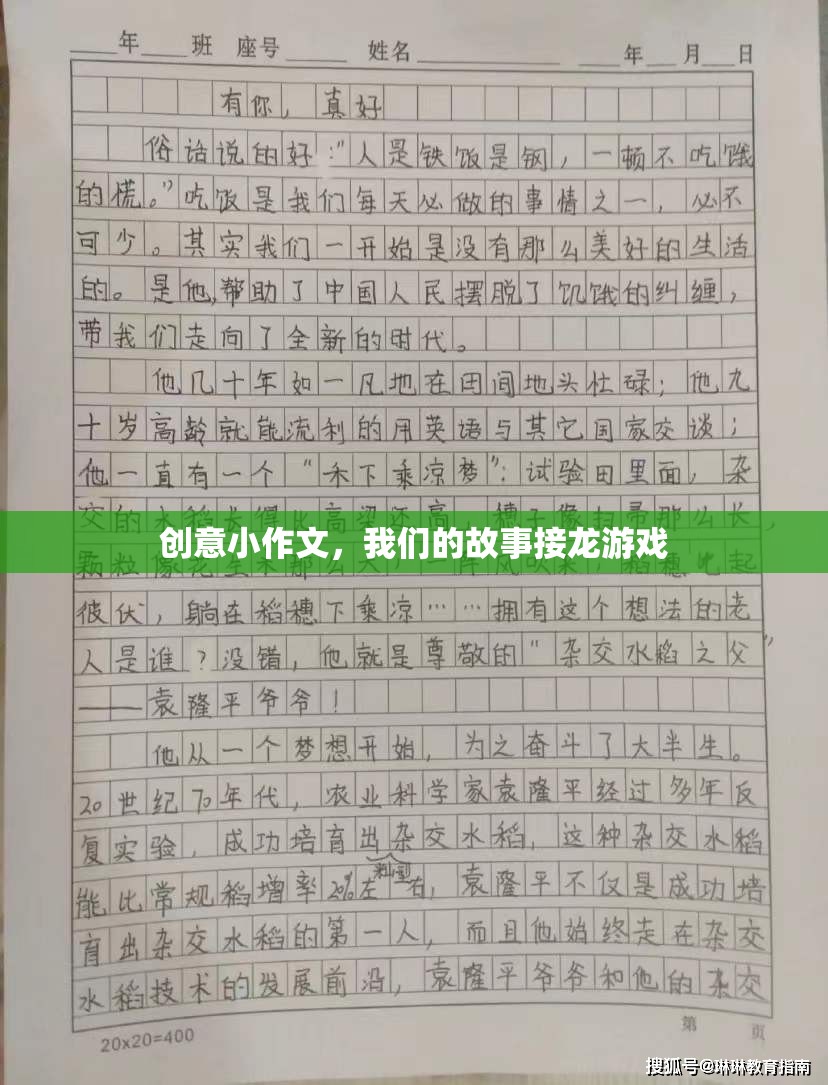 ___年___班 座号_____ 姓名__________ ___年___月___日
有你，真好
俗话说的好："人是铁饭是钢，一顿不吃饿
的慌。"吃饭是我们每天必做的事情之一，必不
可少。其实我们一开始是没有那么美好的生活
的。是他，帮助了中国人民摆脱了饥饿的纠缠，
带我们走向了全新的时代。
他几十年如一凡地在田间地头忙碌；他九
十岁高龄就能流利的用英语与其它国家交谈；
他一直有一个"禾下乘凉梦"：试验田里面，杂
交的水稻长得比高粱还高，穗子像扫帚那么长，
创意小作文，我们的故事接龙游戏
颗粒像花生米那么大，一阵风吹来，稻穗此起
彼伏，躺在稻穗下乘凉……拥有这个想法的老
人是谁？没错，他就是尊敬的"杂交水稻之父"
——袁隆平爷爷！
他从一个梦想开始，为之奋斗了大半生。
20世纪70年代，农业科学家袁隆平经过多年反
复实验，成功培育出杂交水稻，这种杂交水稻
能比常规稻增率20%左右，袁隆平不仅是成功培
育出杂交水稻的第一人，而且他始终走在杂交
水稻技术的发展前沿，袁隆平爷爷和他的杂交
20×20=400
第 页
搜狐号@琳琳教育指南